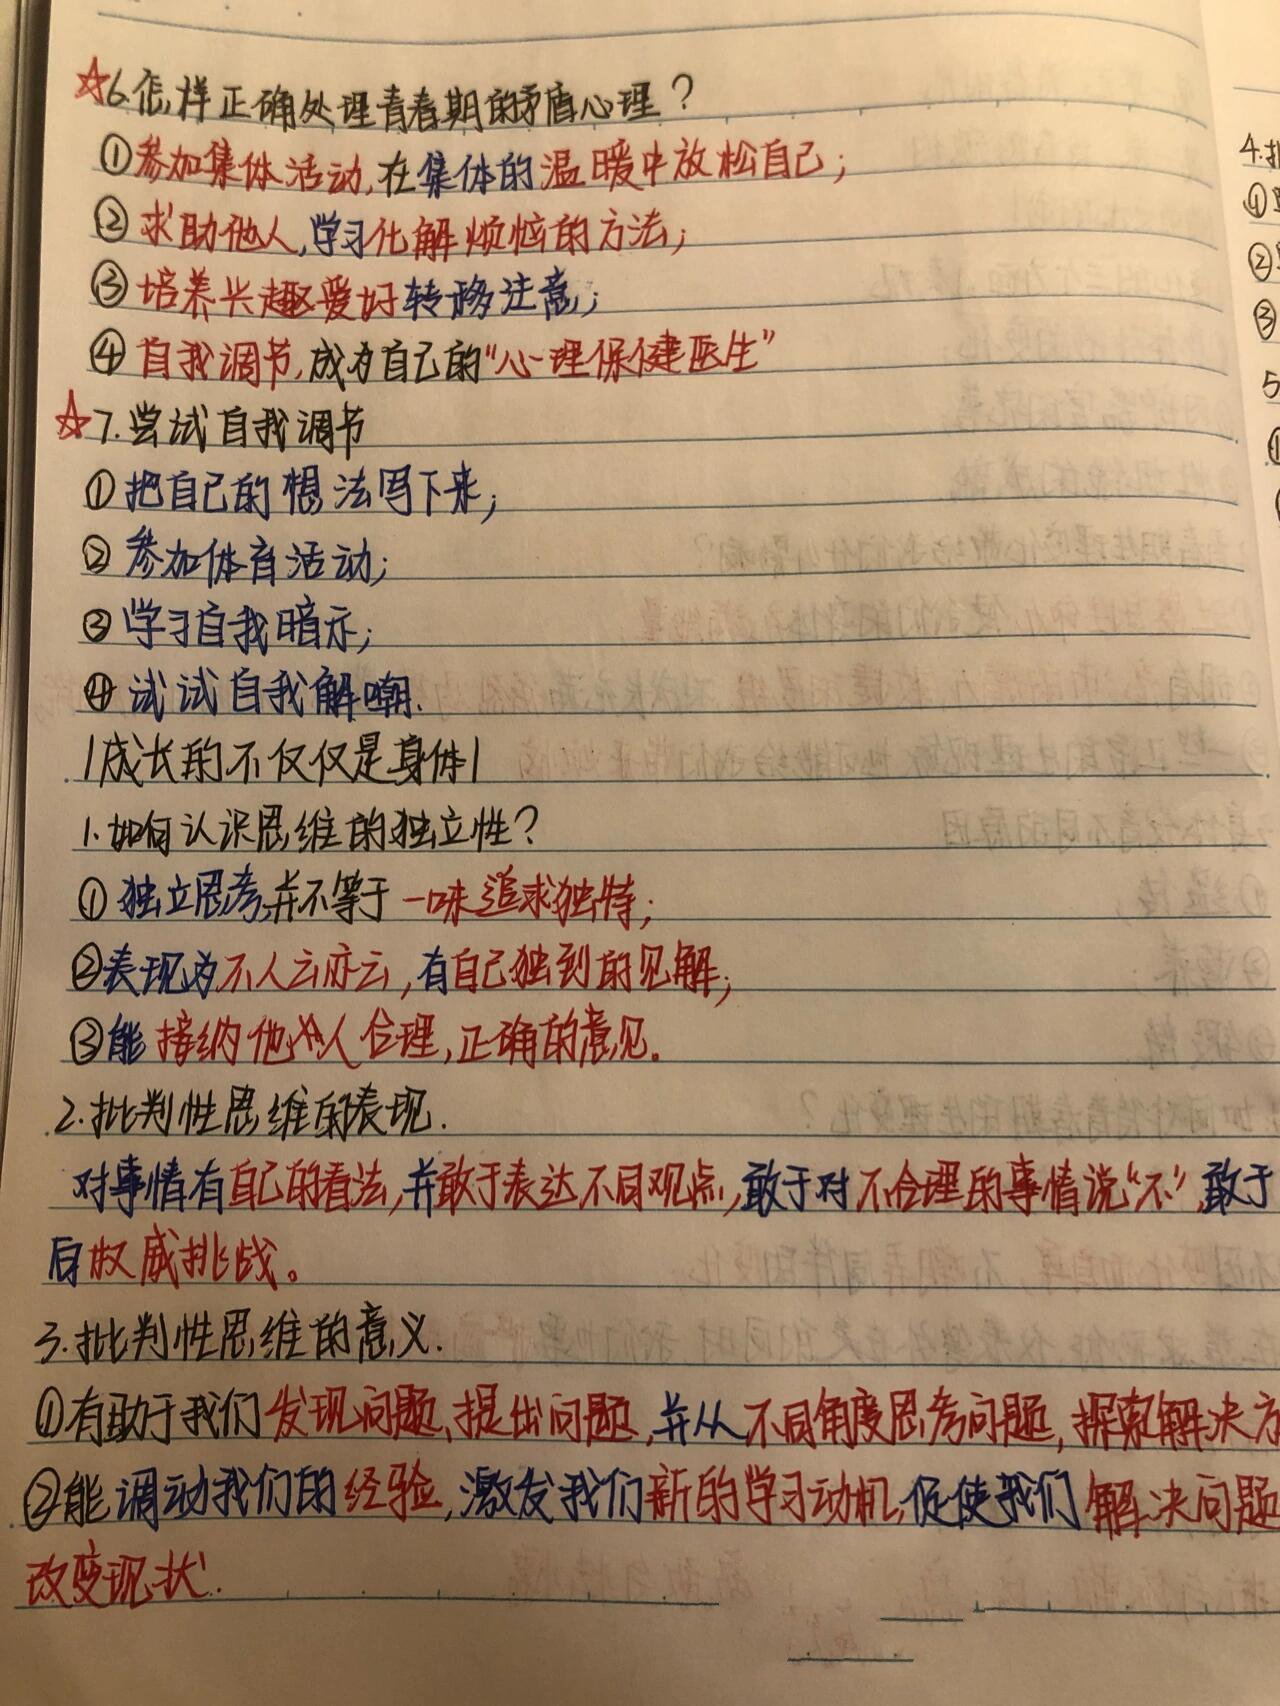 ☆6.怎样正确处理青春期的矛盾心理？
①参加集体活动,在集体的温暖中放松自己；
②求助他人,学习化解烦恼的方法；
③培养兴趣爱好转移注意；
④自我调节,成为自己的“心理保健医生”
☆7.尝试自我调节
①把自己的想法写下来；
②参加体育活动；
③学习自我暗示；
④试试自我解嘲.
|成长的不仅仅是身体|
1.如何认识思维的独立性？
①独立思考,并不等于一味追求独特；
②表现为不人云亦云,有自己独到的见解；
③能接纳他人合理,正确的意见。
2.批判性思维的表现.
对事情有自己的看法,并敢于表达不同观点,敢于对不合理的事情说“不”,敢于
向权威挑战。
3.批判性思维的意义.
①有助于我们发现问题、提出问题,并从不同角度思考问题,探索解决方
②能调动我们的经验,激发我们新的学习动机,促使我们解决问题
改变现状.
4.批
①
②
③
5
①